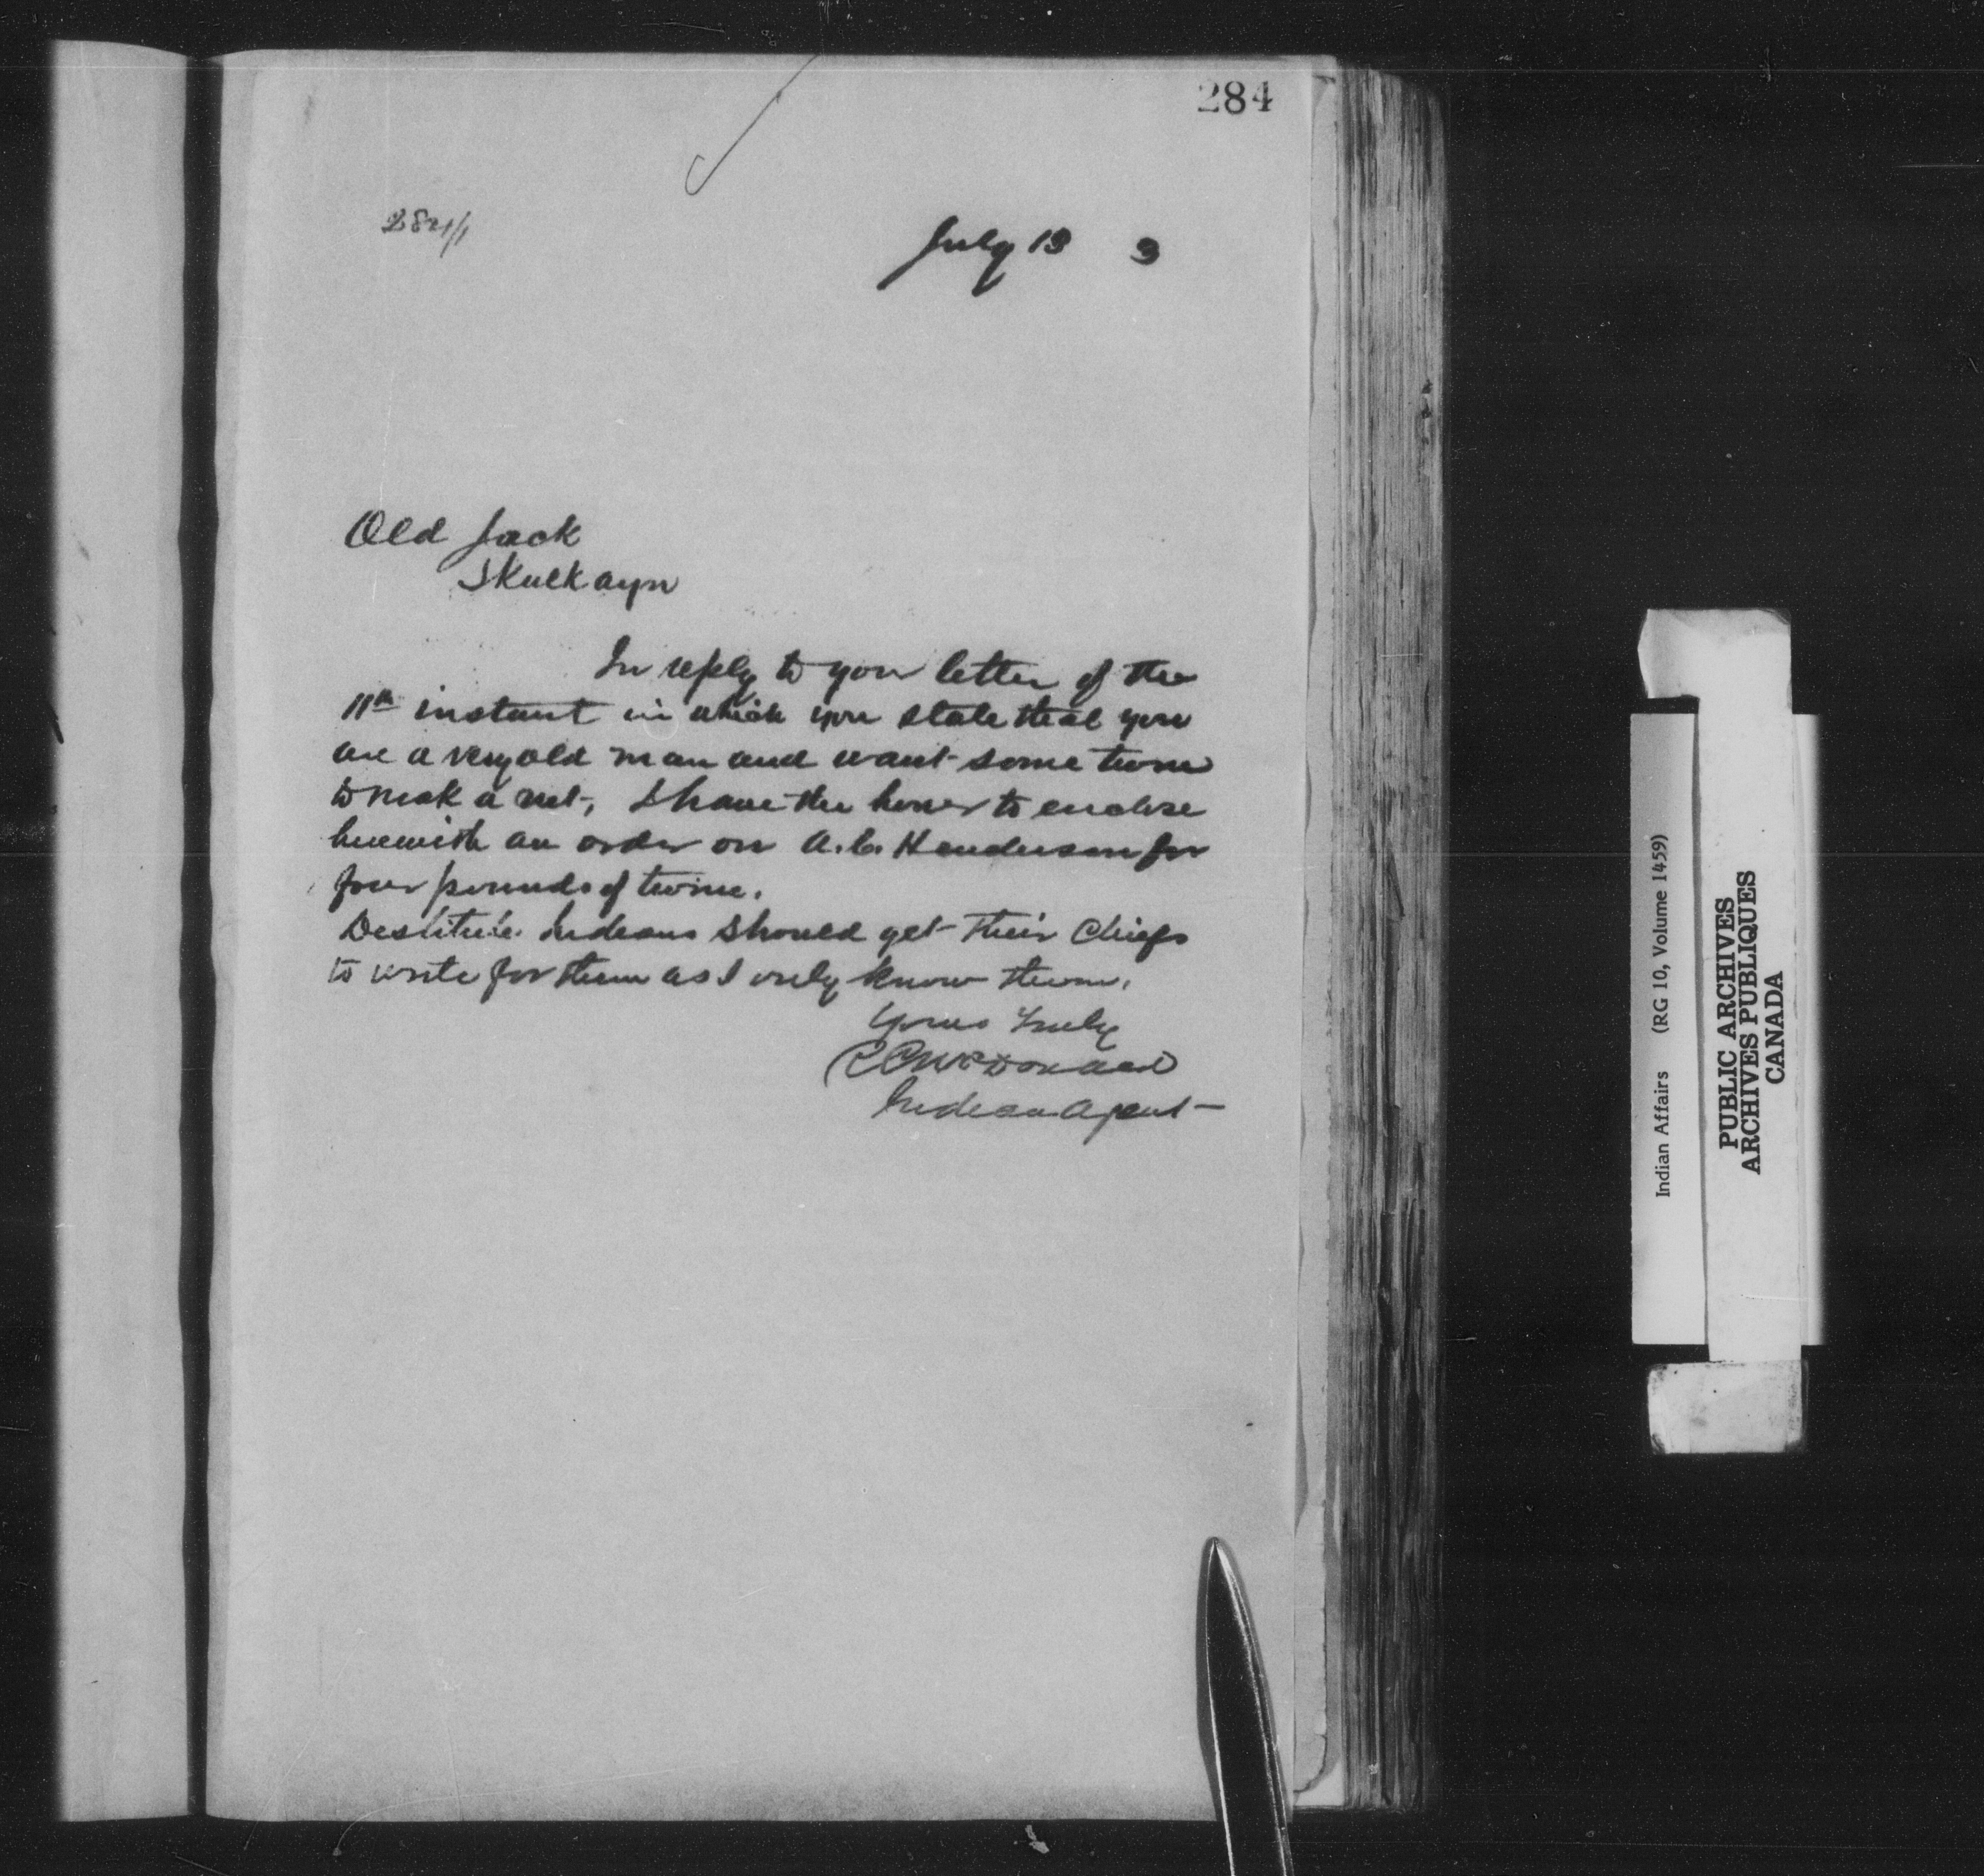 284
July 13 3
Old Jack
Skulkayn
In reply to your letter of the
11th instant in which you state that you
are a very old man and want some twine
to mak a net, I have the honor to enclose
herewith an order on A.C. Henderson for
four pounds of twine.
Destitute Indians should get their Chiefs
to write for them as I only know them.
Yours Truly
McDonald
Indian Agent
Indian Affairs (RG 10, Volume 1459)
PUBLIC ARCHIVES
ARCHIVES PUBLIQUES
CANADA